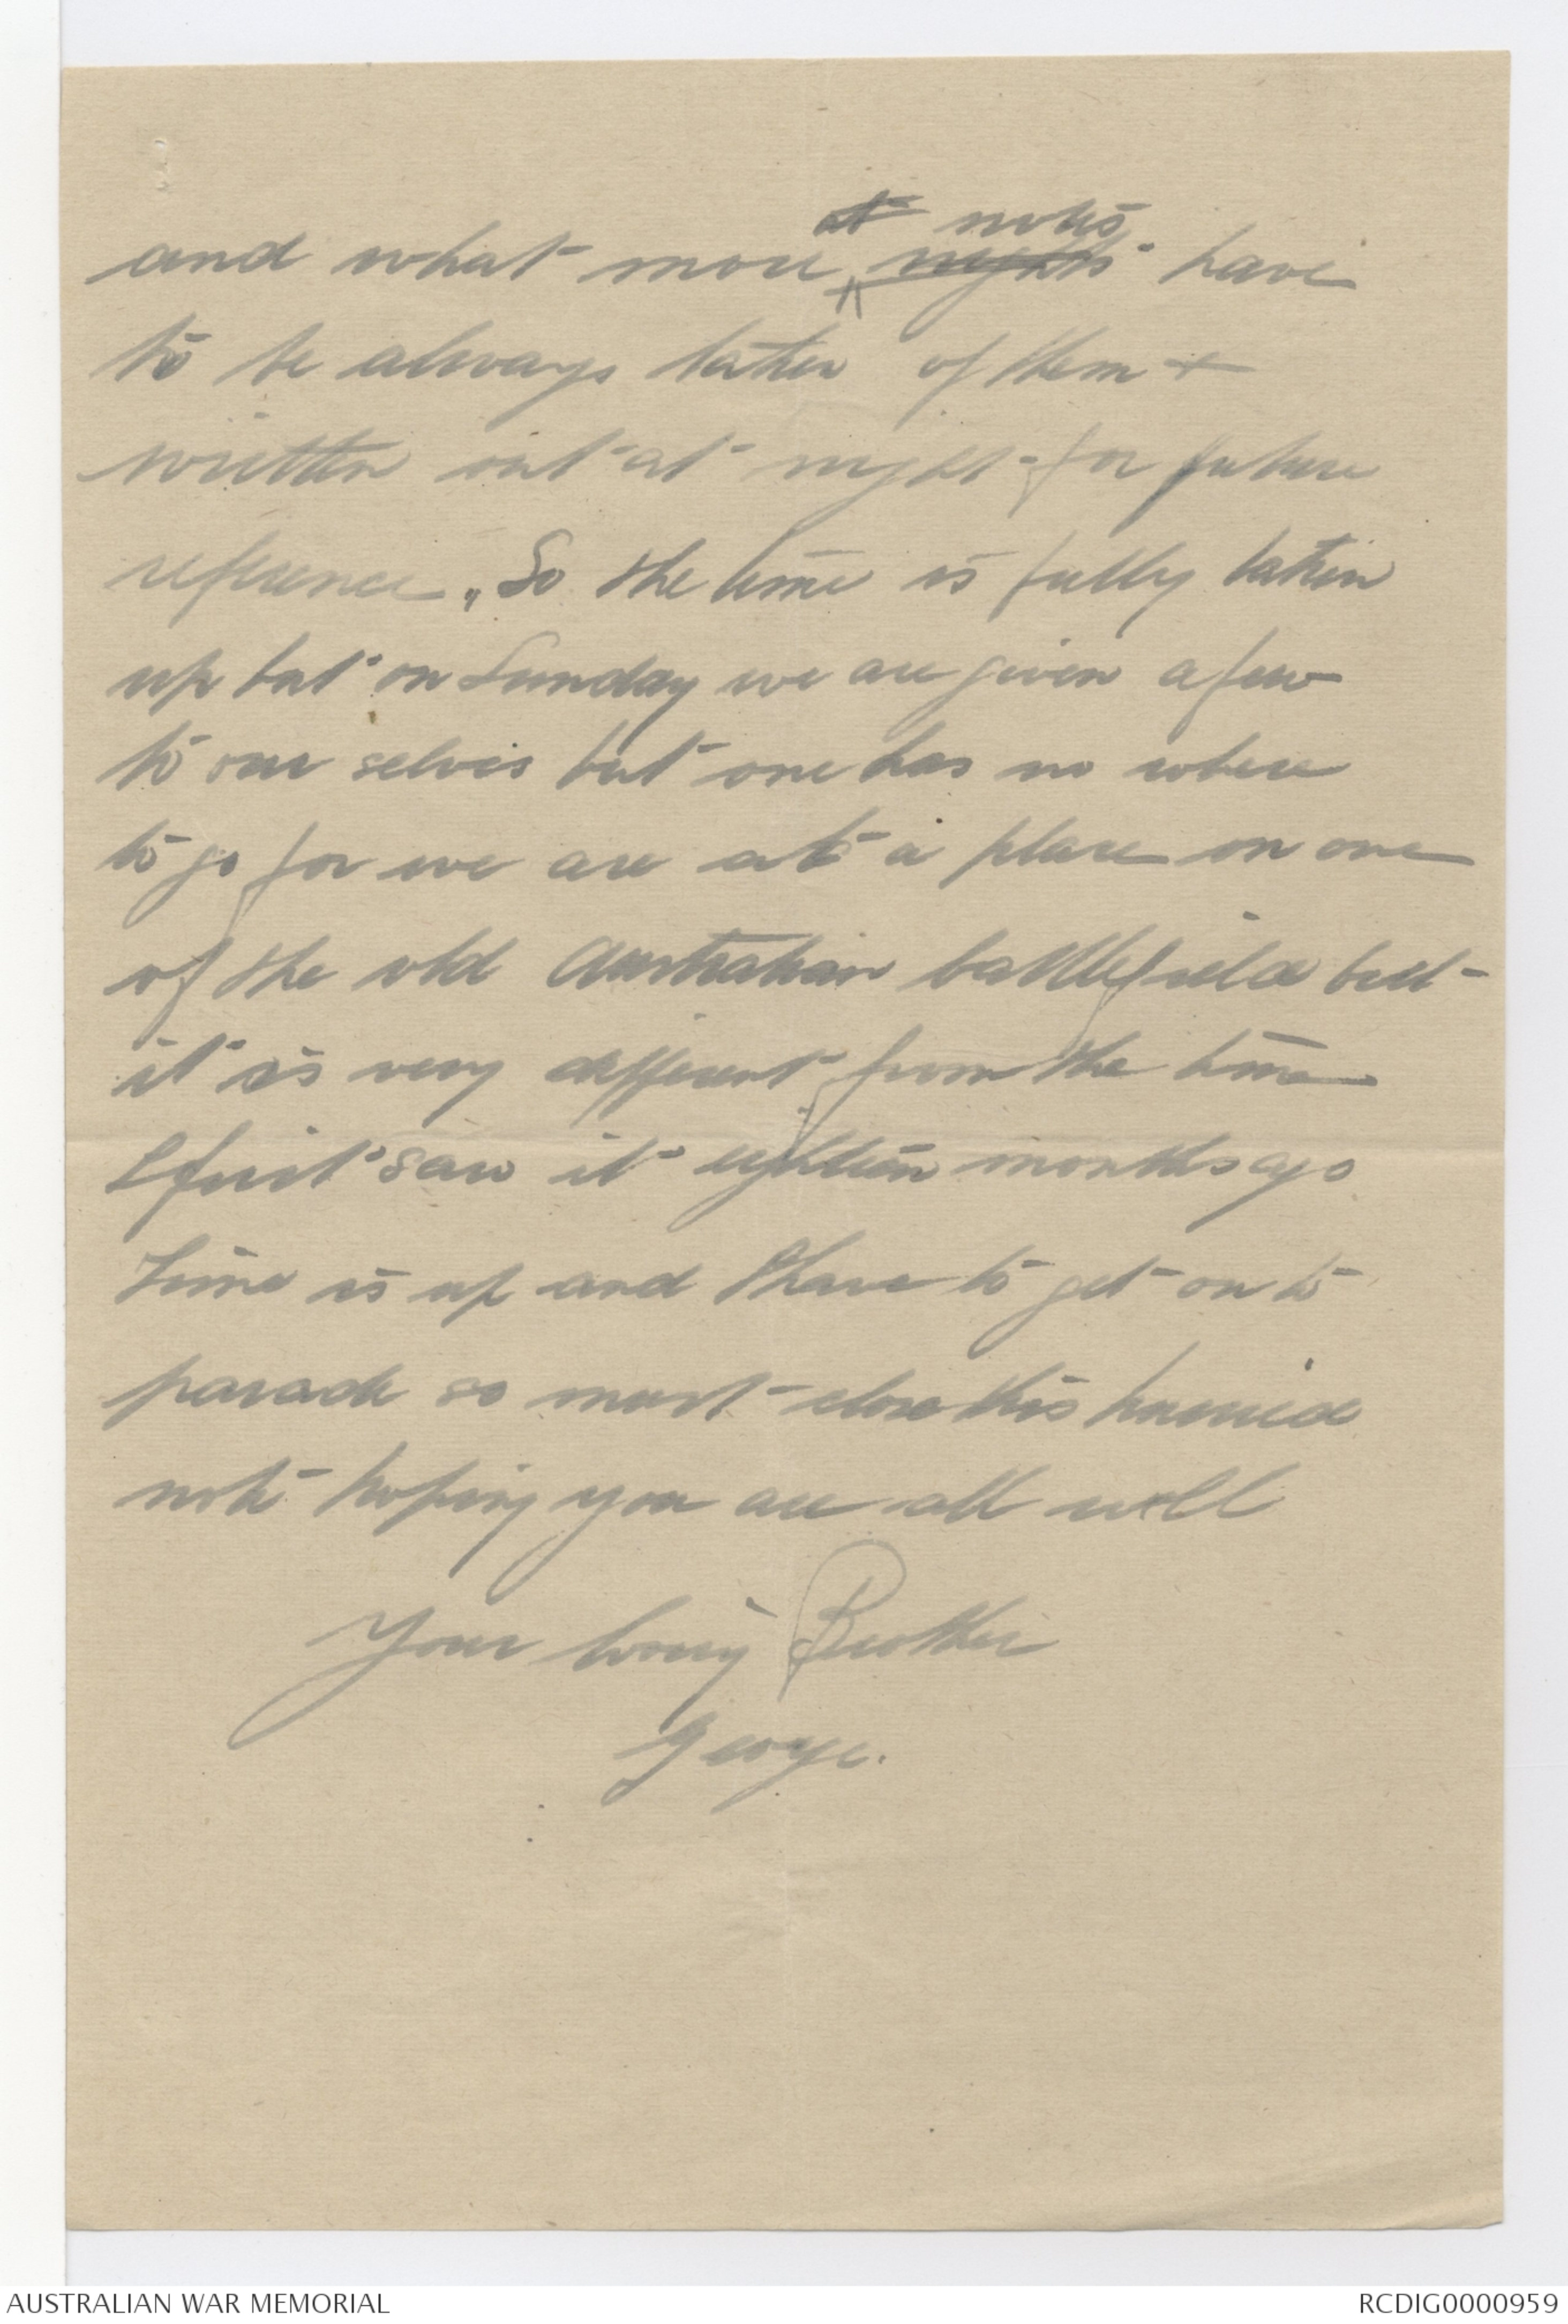 and what more ~~at~~ notes ~~nights~~ have
to be always taken of them +
written out at night for future
reference. So the time is fully taken
up but on Sunday we are given a few
to our selves but one has no where
to go for we are at a place on one
of the old Australian battlefield but
it is very different from the time
I first saw it eighteen months ago
Time is up and I have to get on to
parade so must close this hurried
note hoping you are all well
Your loving Brother
George.
AUSTRALIAN WAR MEMORIAL
RCDIG0000959